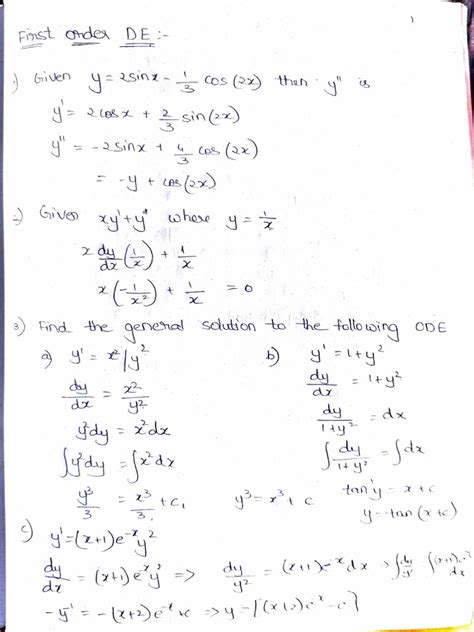 1
First order DE :-
1) Given y = 2sinx - 1/3 cos(2x) then y" is
y' = 2cosx + 2/3 sin(2x)
y" = -2sinx + 4/3 cos(2x)
= -y + cos(2x)
2) Given xy' + y where y = 1/x
x dy/dx (1/x) + 1/x
x(-1/x²) + 1/x = 0
3) Find the general solution to the following ODE
a) y' = x²/y²
dy/dx = x²/y²
y²dy = x²dx
∫y²dy = ∫x²dx
y³/3 = x³/3 + c₁
y³ = x³ + c
b) y' = 1+y²
dy/dx = 1+y²
dy/1+y² = dx
∫dy/1+y² = ∫dx
tan⁻¹y = x+c
y = tan(x+c)
c) y' = (x+1)e⁻ˣy²
dy/dx = (x+1)e⁻ˣy² => dy/y² = (x+1)e⁻ˣdx => ∫dy/y² ∫(x+1)e⁻ˣ dx
-y⁻¹ = -(x+2)e⁻ˣ + c => y =